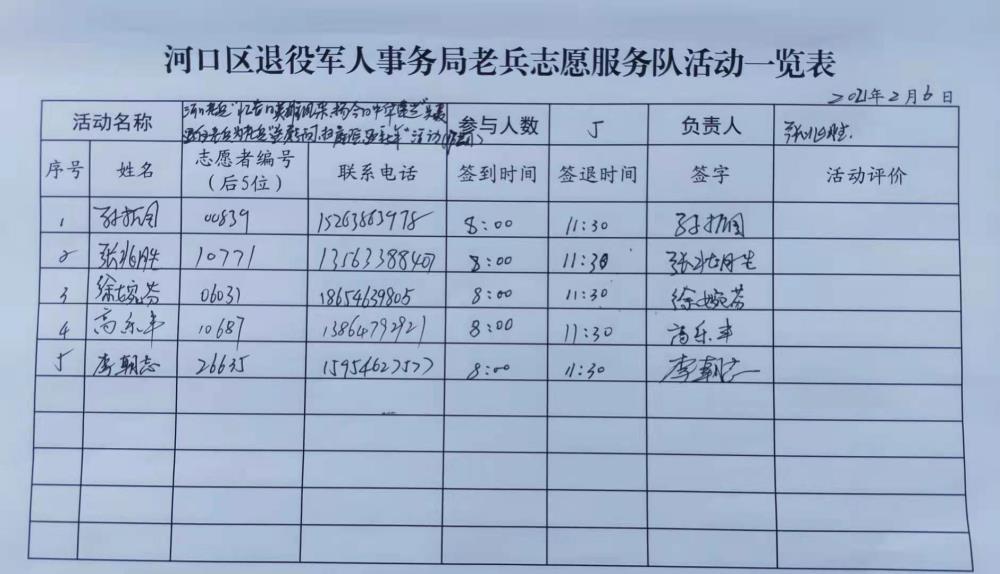 河口区退役军人事务局老兵志愿服务队活动一览表
2021年2月6日
活动名称 参与人数 5 负责人 张兆胜
序号 姓名 志愿者编号（后5位） 联系电话 签到时间 签退时间 签字 活动评价
1 00839 15263863978 8:00 11:30
2 张兆胜 10771 13563388407 8:00 11:30 张兆胜
3 徐婉芬 06031 18654639805 8:00 11:30 徐婉芬
4 高乐丰 10687 13864792921 8:00 11:30 高乐丰
5 李朝志 26635 15954627577 8:00 11:30 李朝志